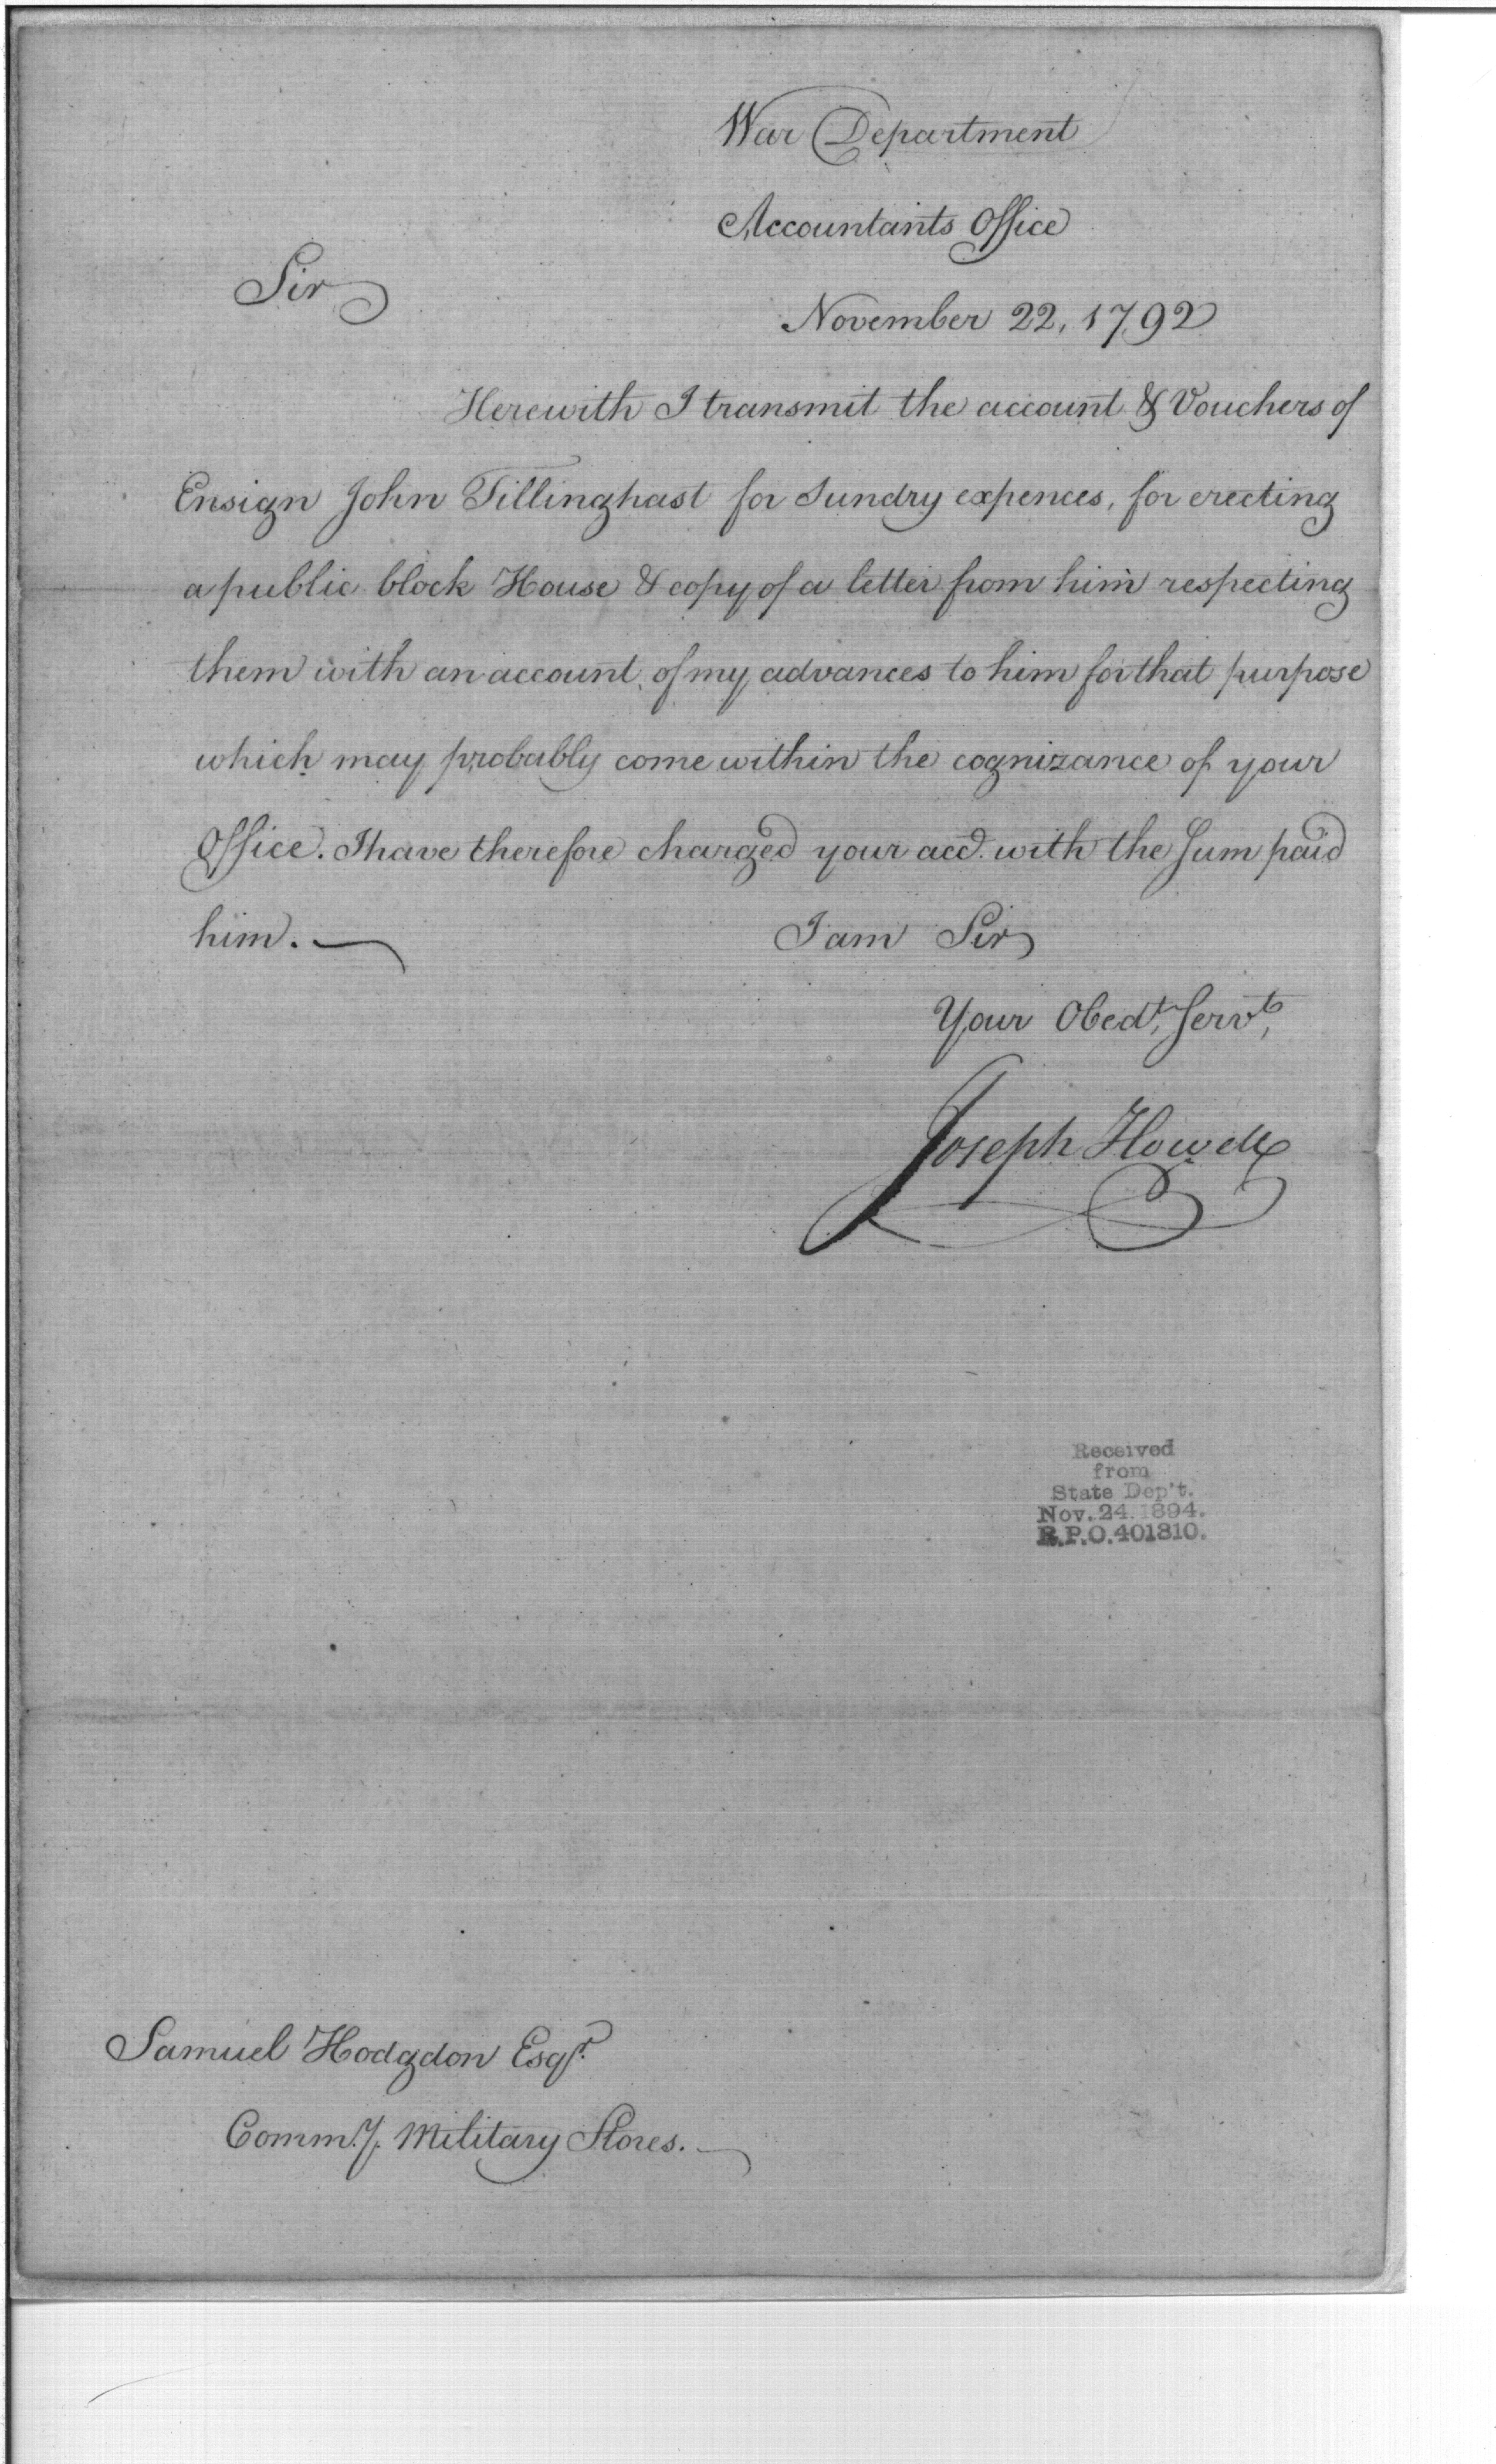 War Department
Accountants Office
Sir
November 22, 1792
Herewith I transmit the account & Vouchers of
Ensign John Tillinghast for Sundry expences, for erecting
a public block House & copy of a letter from him respecting
them with an account of my advances to him for that purpose
which may probably come within the cognizance of your
Office. I have therefore charged your accd. with the Sum paid
him. —
I am Sir
Your Obedt, Servt,
Joseph Howell
Received
from
State Dep't.
Nov. 24. 1894.
R.P.O. 401810.
Samuel Hodgdon Esqr.
Commy. Military Stores. —